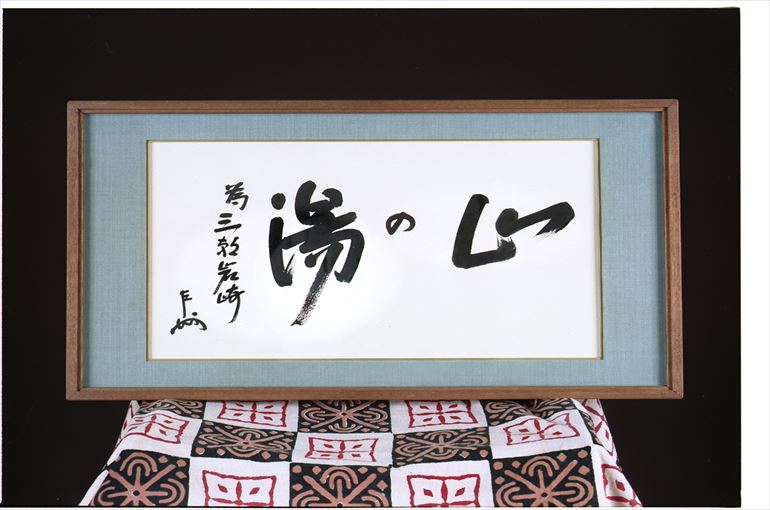 山の湯
為三朝岩崎